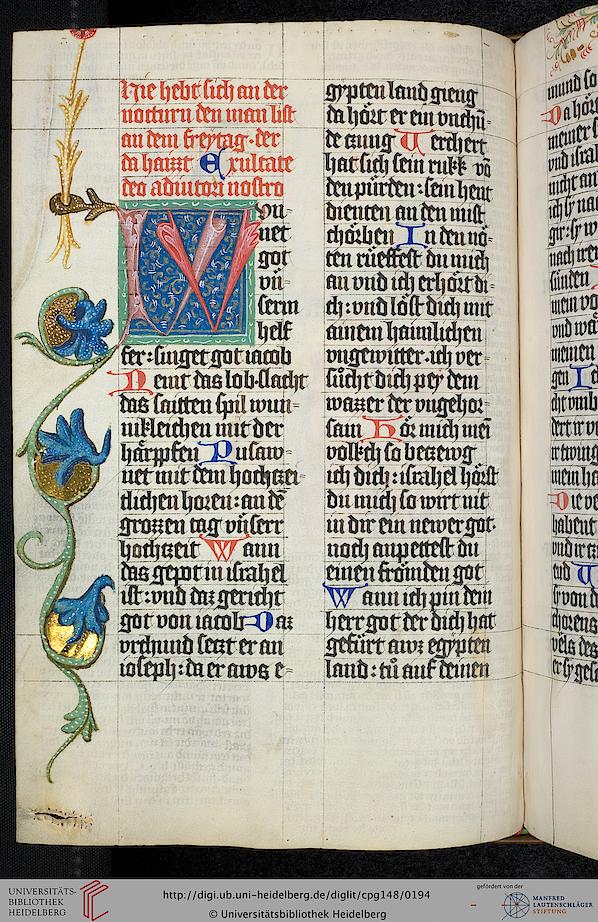 Hie hebt sich an der
nocturn den man list
an dem freytag. der
da haizzt Exultate
deo adiutori nostro
Wu-
net
got
vn-
serm
helf
fer: singet got iacob
Nemt das lob. slacht
das saitten spil wun-
nikleichen mit der
härpfen Pusaw-
net mit dem hochczei-
dlichen horen: an dē
grozzen tag vnserr
hochczeit Wann
das gepot in israhel
ist: vnd daz gericht
got von iacob Daz
vrchund seczt er an
ioseph: da er aws e-
gypten land gieng
da hört er ein vnchu-
de czung Er chert
hat sich sein rukk vō
den pürden: sein hent
dienten an den mist
chörben In den nö-
ten rüeffest du mich
an vnd ich erhört di-
ch: vnd löst dich mit
ainem haimlichen
vngewitter. ich ver-
sücht dich pey dem
wazzer der vngehor-
sam Hör mich mein
volkch so beczewg
ich dich: israhel hörst
du mich so wirt nit
in dir ein newer got.
noch anpettest du
einen frömden got
Wann ich pin dein
herr got der dich hat
gefürt awz egypten
land: tů auf deinen
mund so
Da hört
meiner s
vnd israh
nicht an
nach iren
sünden
mein vo
UNIVERSITÄTS-
BIBLIOTHEK
HEIDELBERG
http://digi.ub.uni-heidelberg.de/diglit/cpg148/0194
© Universitätsbibliothek Heidelberg
gefördert von der
MANFRED
LAUTENSCHLÄGER
STIFTUNG